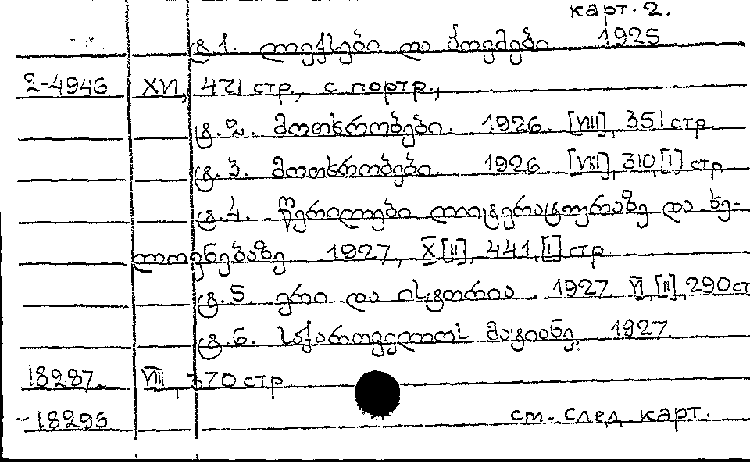 карт. 2.
ტ.1. ლექსები და პოემები 1925
2-4946 XVI, 421 стр., с портр.,
ტ.2. მოთხრობები. 1926. [VIII], 351 стр
ტ.3. მოთხრობები. 1926 [VII], 310, [I] стр
ტ.4. წერილები ლიტერატურაზე და ხე-
ლოვნებაზე 1927, X [II], 441, [I] стр
ტ.5 ერი და ისტორია. 1927 VI, [II], 290 ст
ტ.6. საქართველოს მატიანე. 1927
18287. VIII, 370 стр
-18295 см. след карт.